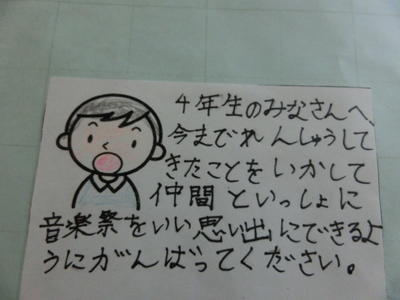 4年生のみなさんへ、
今までれんしゅうして
きたことをいかして
仲間といっしょに
音楽祭をいい思い出にできるよ
うにがんばってください。